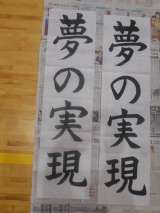 夢の実現
夢の実現